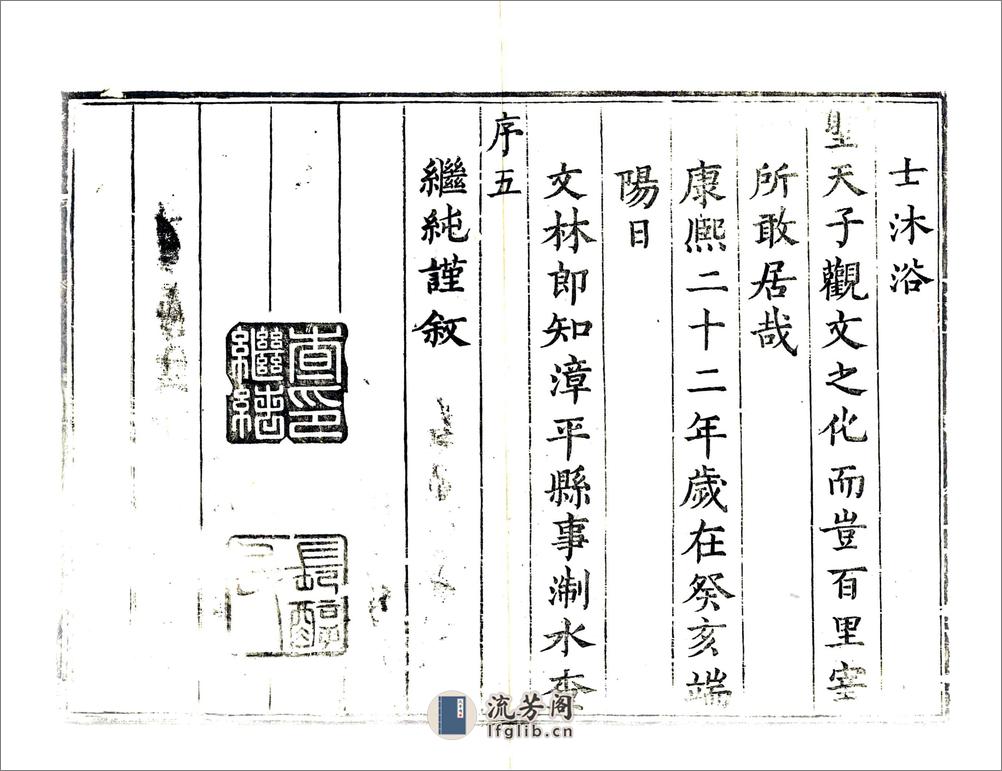 士沐浴
聖天子觀文之化而豈百里宰
所敢居哉
康熙二十二年歲在癸亥端
陽日
文林郎知漳平縣事淛水查
序五
繼純謹叙
查印
繼純
流芳阁
lfglib.cn